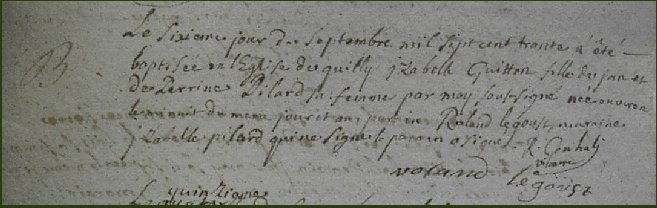 B
Le sixieme jour de septembre mil sept cent trente a été
baptisée en l'Eglise de quilly jzabelle Guitton fille de jan et
de Perrine Pilard sa femme par moy soussigné nee environ
le minuit du meme jour et an, parein Roland legoust, maraine
jzabelle pilard qui ne signe le parrain a signé
R.
vicaire
roland legoust